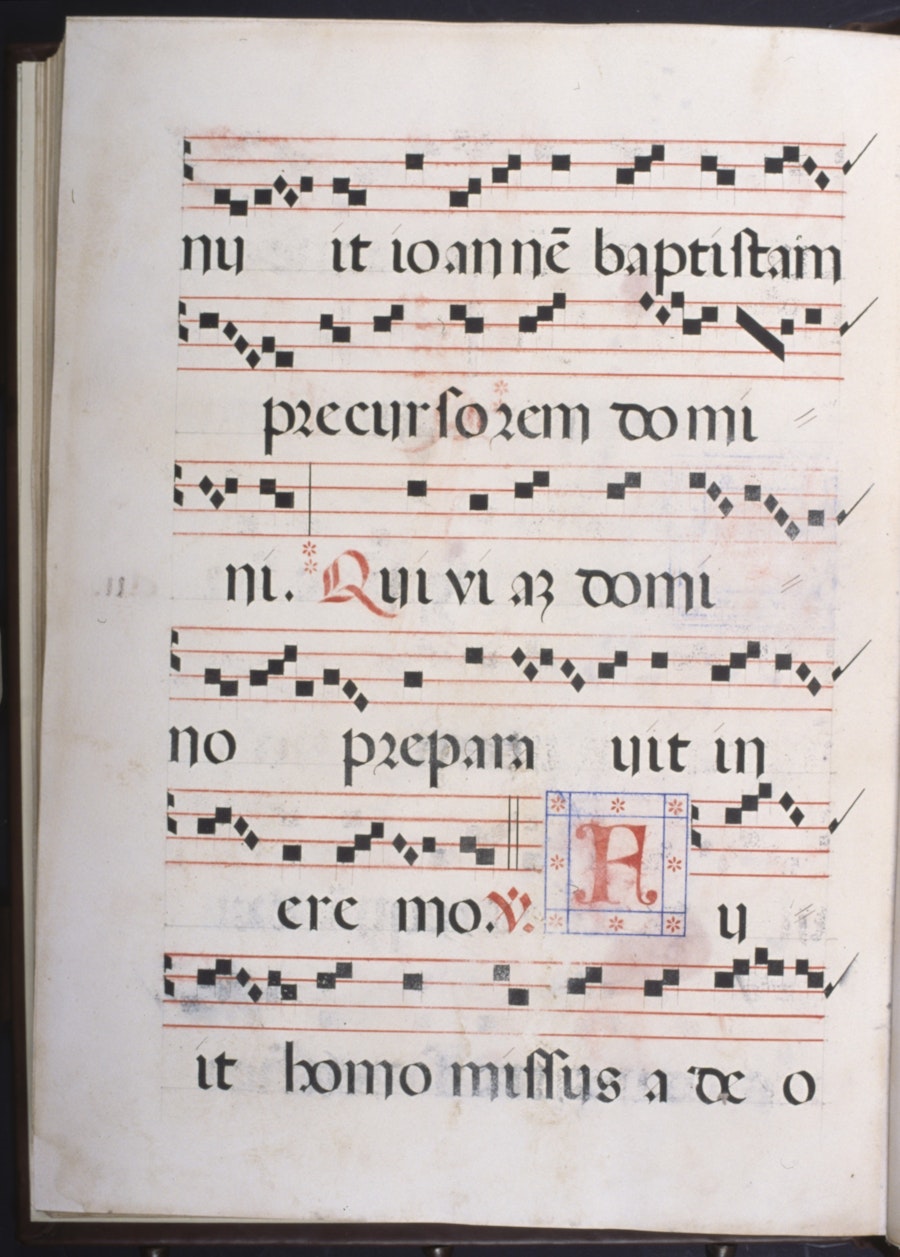 nu it ioannē baptistam
precursorem domi //
ni. Qui viaʒ domi //
no prepara uit in
ere mo. V. F u //
it homo missus a de o